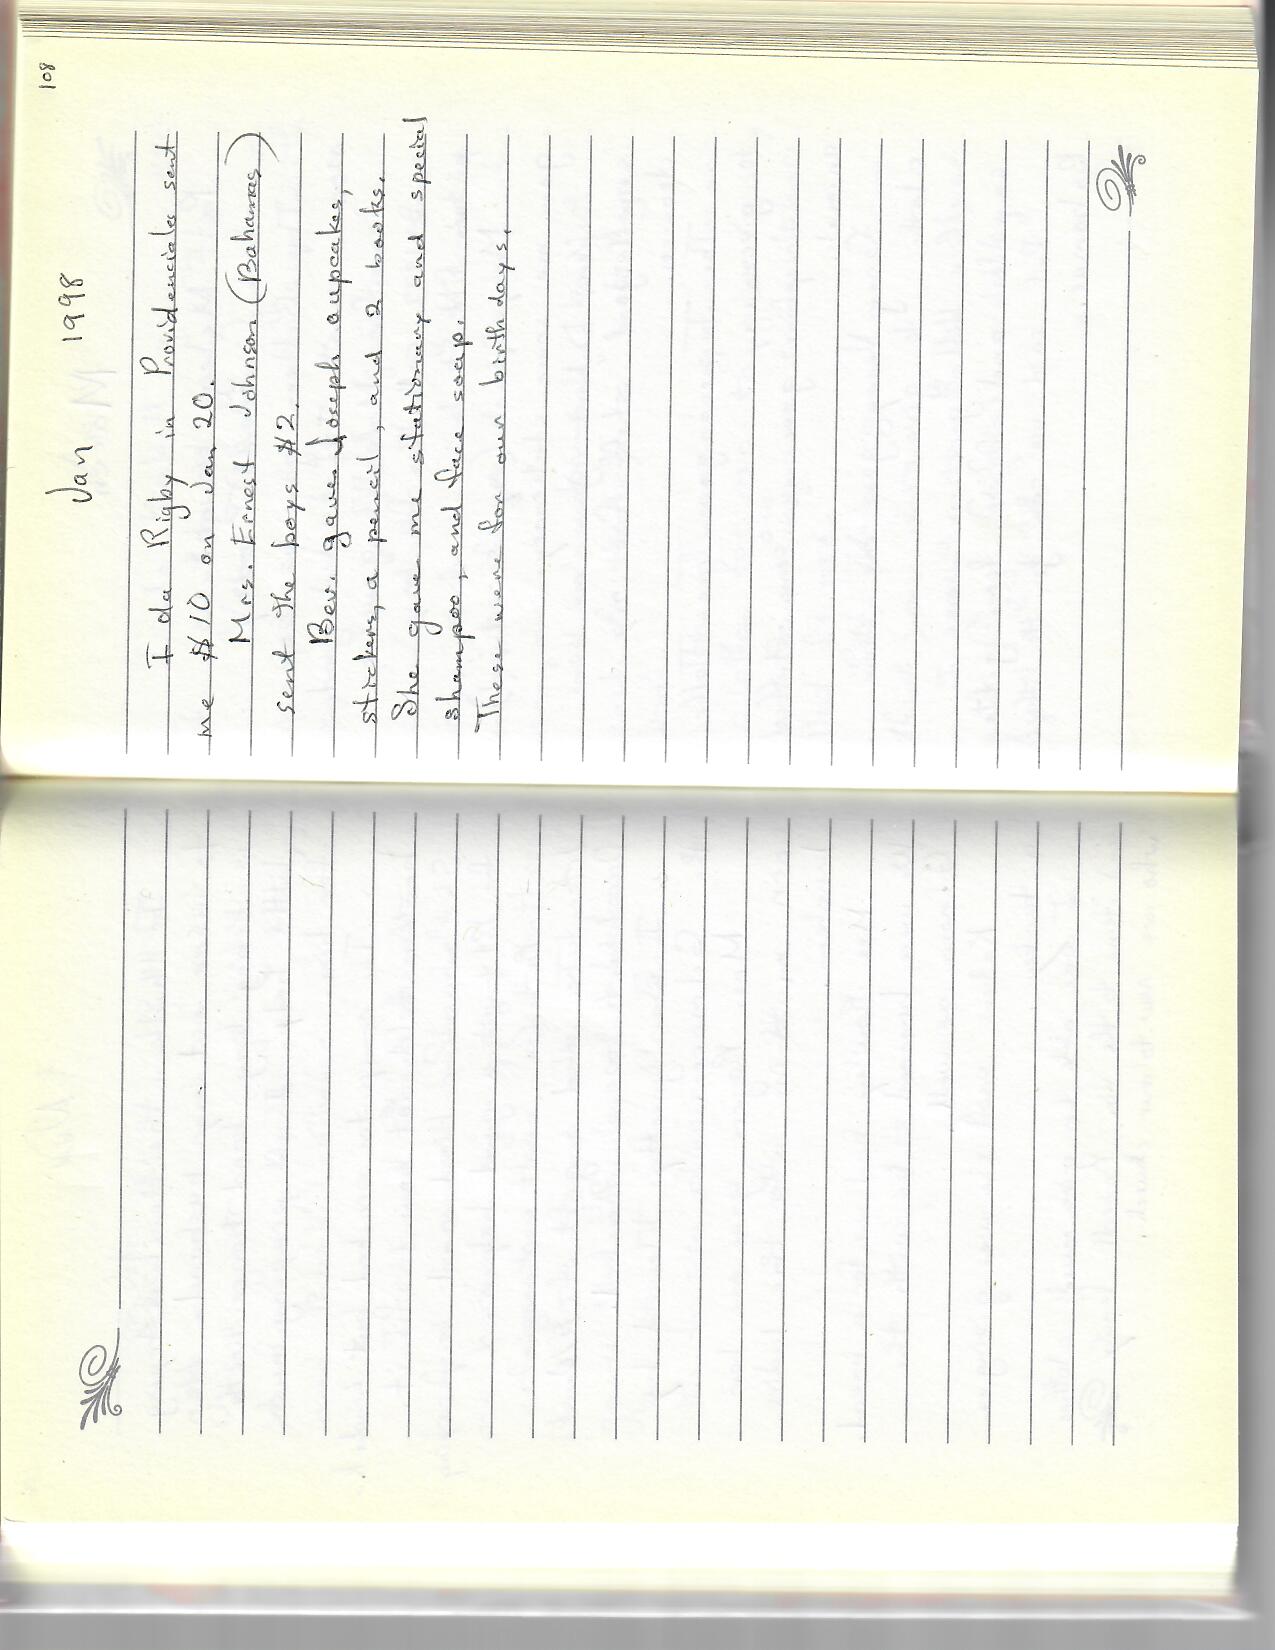 108
Jan 1998
Ida Rigby in Providenciales sent
me $10 on Jan 20.
Mrs. Ernest Johnson (Bahamas)
sent the boys $2.
Bev. gave Joseph cupcakes,
stickers, a pencil, and 2 books.
She gave me stationary and special
shampoo, and face soap.
These were for our birthdays.